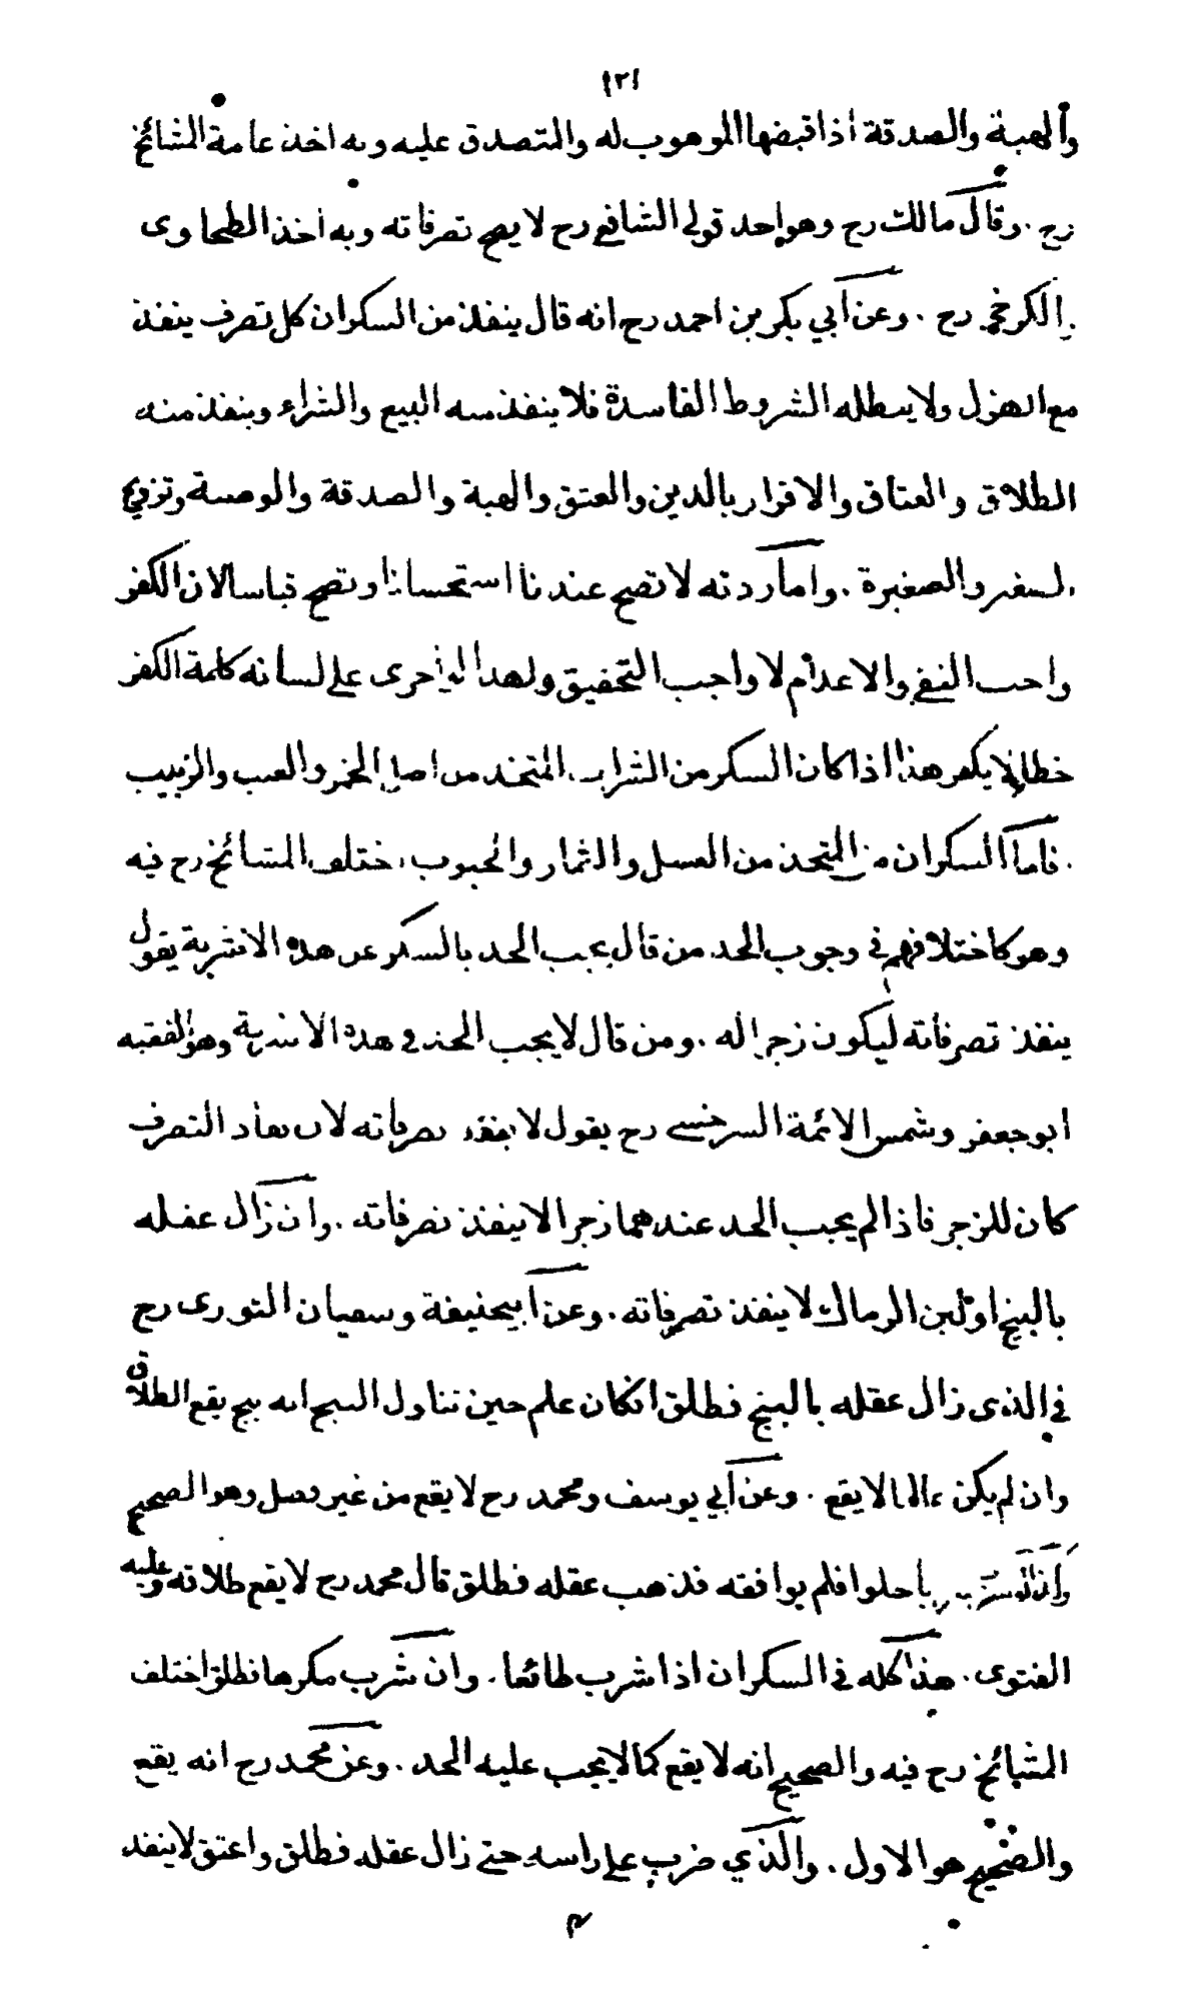 ١٢١
والهبة والصدقة اذا قبضها الموهوب له والمتصدق عليه وبه اخذ عامة المشائخ
رح . وقال مالك رح وهو احد قولي الشافعي رح لا يصح تصرفاته وبه اخذ الطحاوى
والكرخي رح . وعن أبي بكر بن احمد رح انه قال ينفذ من السكران كل تصرف ينفذ
مع الهزل ولا يبطله الشروط الفاسدة فلا ينفذ منه البيع والشراء وينفذ منه
الطلاق والعتاق والاقرار بالدين والعتق والهبة والصدقة والوصية وتزويج
الصغير والصغيرة . واما ردته لا تصح عندنا استحسانا وتصح قياسا لان الكفر
واجب النفي والاعدام لا واجب التحقيق ولهذا لو جرى على لسانه كلمة الكفر
خطا لا يكفر هذا اذا كان السكر من الشراب المتخذ من اصل الخمر والعنب والزبيب
. فاما السكران من المتخذ من العسل والثمار والحبوب اختلف المشائخ رح فيه
وهو كاختلافهم في وجوب الحد من قال يجب الحد بالسكر من هذه الاشربة يقول
ينفذ تصرفاته ليكون زجرا له . ومن قال لا يجب الحد في هذه الاشربة وهو الفقيه
ابو جعفر وشمس الائمة السرخسي رح يقول لا ينفذ تصرفاته لان نفاذ التصرف
كان للزجر فاذا لم يجب الحد عندهما زجرا لا ينفذ تصرفاته . وان زال عقله
بالبنج او لبن الرماك لا ينفذ تصرفاته . وعن أبيحنيفة وسفيان الثورى رح
في الذى زال عقله بالبنج فطلق انكان علم حين تناول البنج انه بنج يقع الطلاق
وان لم يكن عالما لا يقع . وعن أبي يوسف ومحمد رح لا يقع من غير فصل وهو الصحيح
حلوا فلم يوافقه فذهب عقله فطلق قال محمد رح لا يقع طلاقه وعليه
الفتوى . هذا كله في السكران اذا شرب طائعا . وان شرب مكرها فطلق اختلف
المشائخ رح فيه والصحيح انه لا يقع كما لا يجب عليه الحد . وعن محمد رح انه يقع
والصحيح هو الاول . والذي ضرب على راسه حتى زال عقله فطلق واعتق لا ينفذ